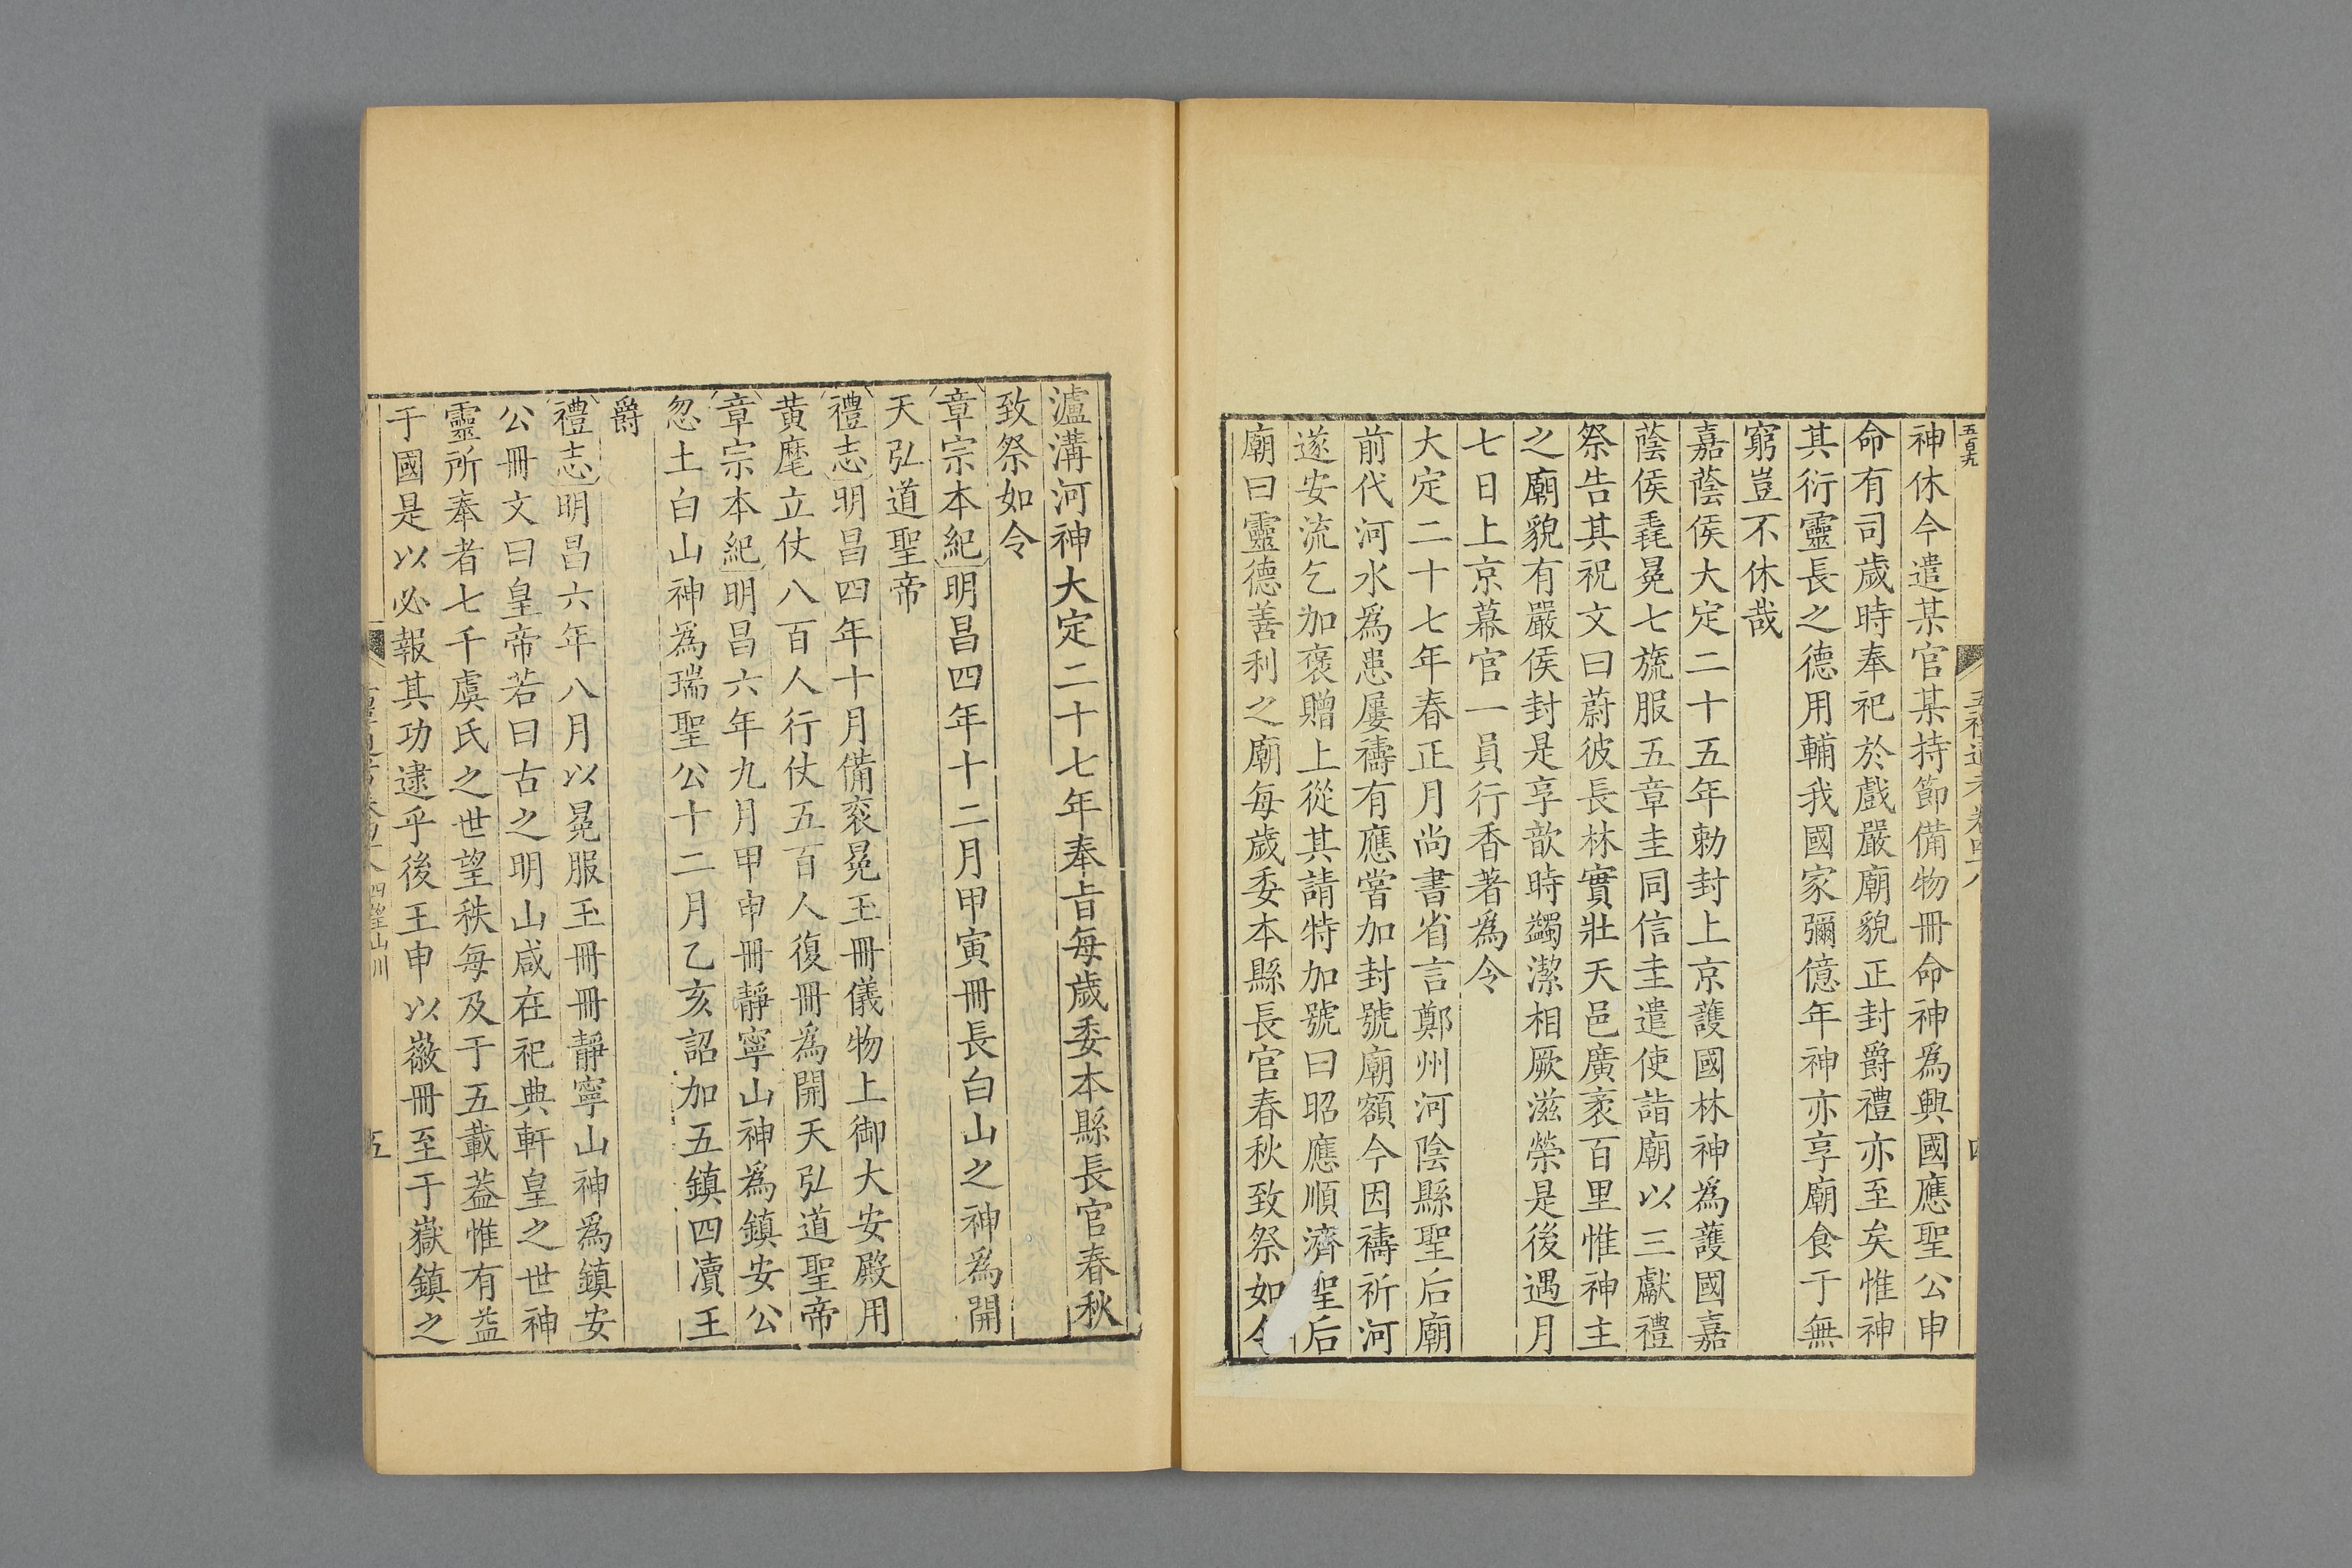 五百九
五禮通考卷四十八
四
神休今遣某官某持節備物冊命神爲興國應聖公申
命有司歲時奉祀於戲嚴廟貌正封爵禮亦至矣惟神
其衍靈長之德用輔我國家彌億年神亦享廟食于無
窮豈不休哉
嘉蔭侯大定二十五年勅封上京護國林神爲護國嘉
蔭侯毳冕七旒服五章圭同信圭遣使詣廟以三獻禮
祭告其祝文曰蔚彼長林實壯天邑廣袤百里惟神主
之廟貌有嚴侯封是享歆時蠲潔相厥滋榮是後遇月
七日上京幕官一員行香著爲令
大定二十七年春正月尚書省言鄭州河陰縣聖后廟
前代河水爲患屢禱有應嘗加封號廟額今因禱祈河
遂安流乞加褒贈上從其請特加號曰昭應順濟聖后
廟曰靈德善利之廟每歲委本縣長官春秋致祭如令
瀘溝河神大定二十七年奉旨每歲委本縣長官春秋
致祭如令
章宗本紀明昌四年十二月甲寅冊長白山之神爲開
天弘道聖帝
禮志明昌四年十月備袞冕玉冊儀物上御大安殿用
黄麾立仗八百人行仗五百人復冊爲開天弘道聖帝
章宗本紀明昌六年九月甲申冊靜寧山神爲鎮安公
忽土白山神爲瑞聖公十二月乙亥詔加五鎮四瀆王
爵
禮志明昌六年八月以冕服玉冊冊靜寧山神爲鎮安
公冊文曰皇帝若曰古之明山咸在祀典軒皇之世神
靈所奉者七千虞氏之世望秩每及于五載葢惟有益
于國是以必報其功逮乎後王申以徽冊至于嶽鎮之
四望山川
五